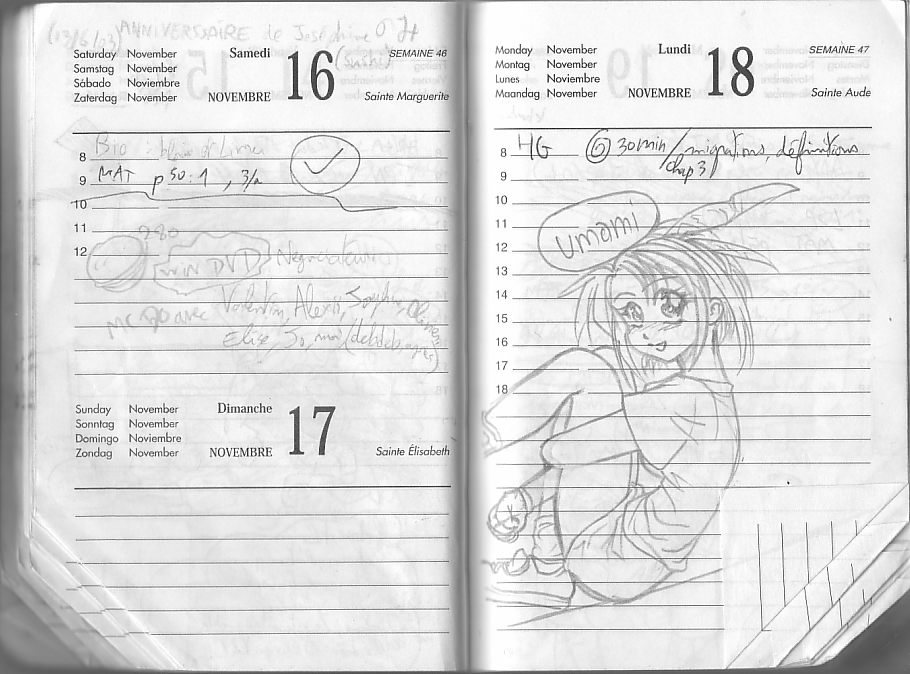 ANNIVERSAIRE de Joséphine
Saturday November
Samstag November
Sábado Noviembre
Zaterdag November
Samedi
NOVEMBRE
16
SEMAINE 46
(sushi)
Sainte Marguerite
Bio
8
9 MAT p 50: 1, 3/a
10
11
12
280
DVD
avec Valentin, Alexis, Sophie,
Elise, Jo, moi
Sunday November
Sonntag November
Domingo Noviembre
Zondag November
Dimanche
NOVEMBRE
17
Sainte Élisabeth
Monday November
Montag November
Lunes Noviembre
Maandag November
Lundi
NOVEMBRE
18
SEMAINE 47
Sainte Aude
8 HG 30min / migrations, définitions
chap 3
9
10
11
umami
12
13
14
15
16
17
18